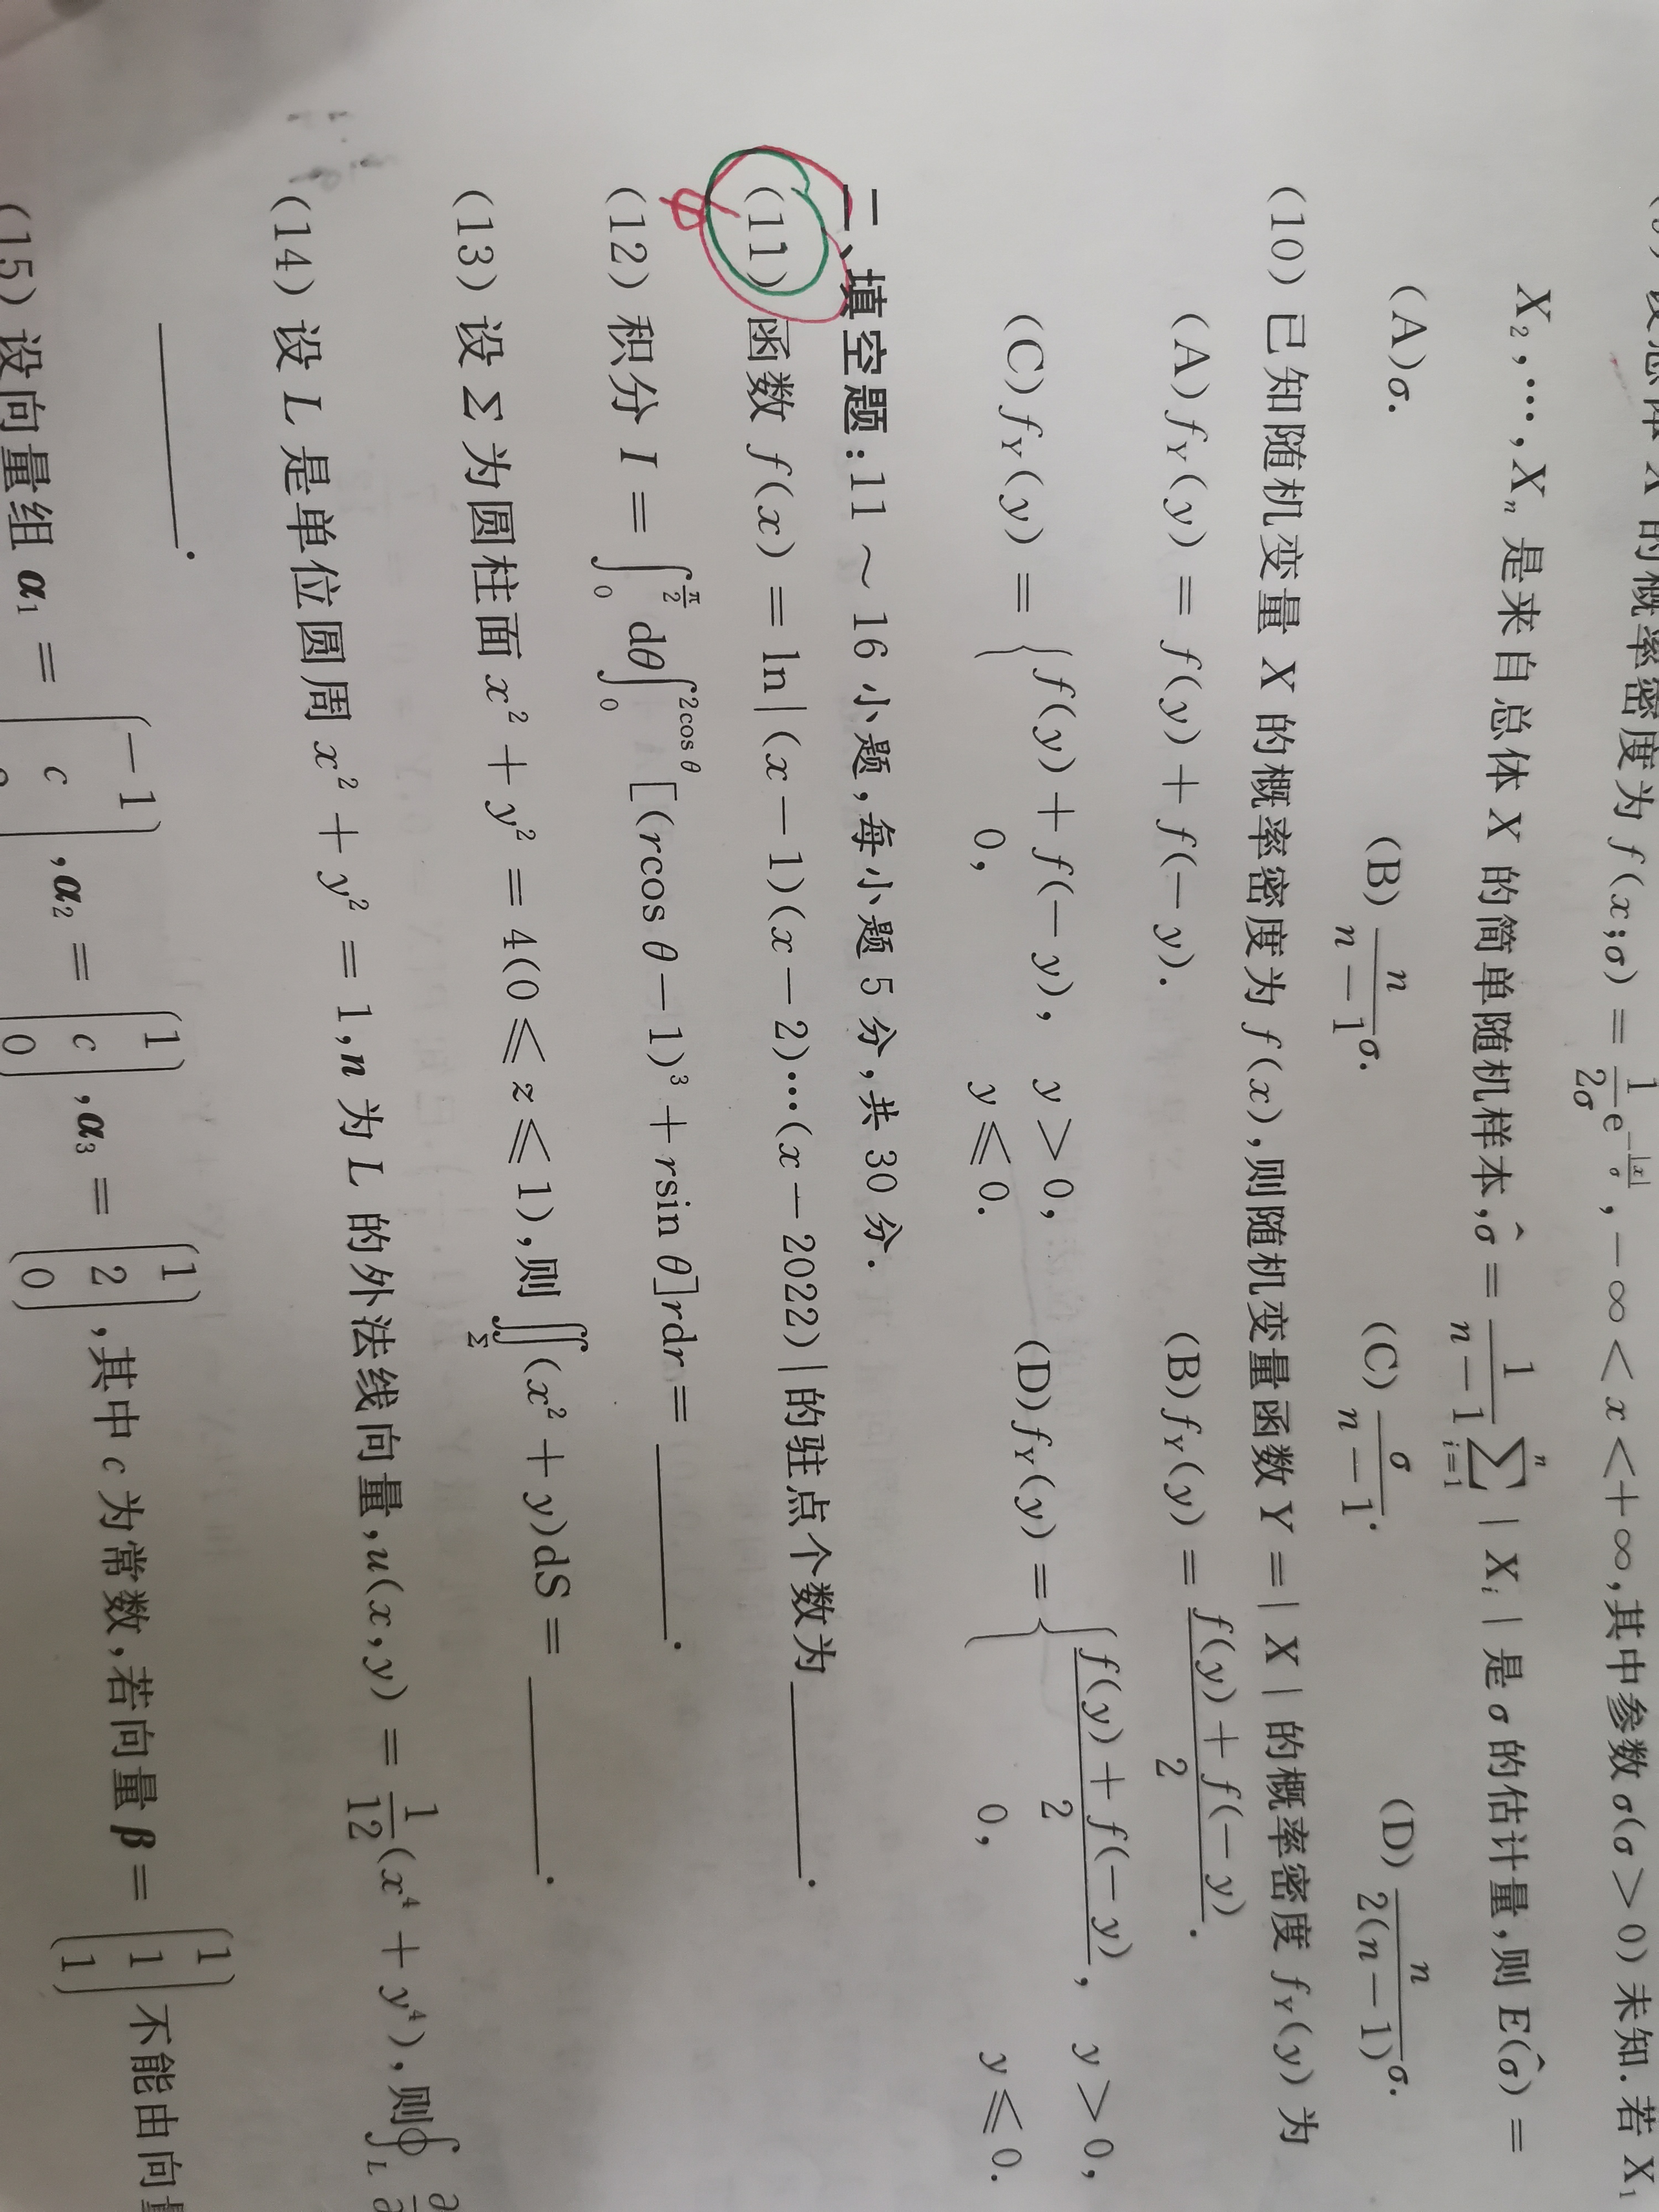 设总体 X 的概率密度为 f(x;σ) = \frac{1}{2σ}e^{-\frac{|x|}{σ}}, -∞ < x < +∞,其中参数 σ(σ > 0) 未知.若 X₁
X₂,⋯,Xₙ 是来自总体 X 的简单随机样本,\hat{σ} = \frac{1}{n-1}\sum_{i=1}^{n} | Xᵢ | 是 σ 的估计量,则 E(\hat{σ}) =
(A)σ. (B)\frac{n}{n-1}σ. (C)\frac{σ}{n-1}. (D)\frac{n}{2(n-1)}σ.
(10) 已知随机变量 X 的概率密度为 f(x),则随机变量函数 Y = | X | 的概率密度 f_Y(y) 为
(A)f_Y(y) = f(y) + f(-y). (B)f_Y(y) = \frac{f(y) + f(-y)}{2}.
(C)f_Y(y) = \begin{cases} f(y) + f(-y), & y > 0, \\ 0, & y ≤ 0. \end{cases} (D)f_Y(y) = \begin{cases} \frac{f(y) + f(-y)}{2}, & y > 0, \\ 0, & y ≤ 0. \end{cases}
二、填空题:11 ～ 16 小题,每小题 5 分,共 30 分.
(11) 函数 f(x) = ln | (x-1)(x-2)⋯(x-2022) | 的驻点个数为______.
(12) 积分 I = \int_{0}^{\frac{π}{2}} dθ \int_{0}^{2cos θ} [(rcos θ-1)³ + rsin θ]rdr = ______.
(13) 设 Σ 为圆柱面 x² + y² = 4(0 ≤ z ≤ 1),则 \iint_{Σ} (x² + y)dS = ______.
(14) 设 L 是单位圆周 x² + y² = 1,n 为 L 的外法线向量,u(x,y) = \frac{1}{12}(x⁴ + y⁴),则 \oint_{L} ∂
______.
(15) 设向量组 α₁ = \begin{pmatrix} -1 \\ c \end{pmatrix}, α₂ = \begin{pmatrix} 1 \\ c \\ 0 \end{pmatrix}, α₃ = \begin{pmatrix} 1 \\ 2 \\ 0 \end{pmatrix},其中 c 为常数,若向量 β = \begin{pmatrix} 1 \\ 1 \\ 1 \end{pmatrix} 不能由向